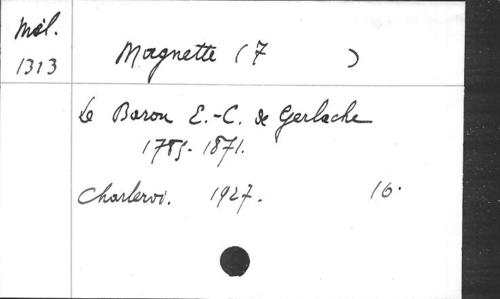 Mél.
1313
Magnette (F )
Le Baron E.-C. de Gerlache
1785-1871.
Charleroi. 1927. 16.